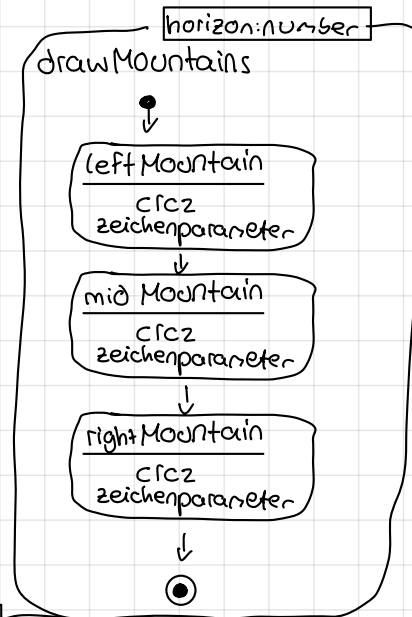 horizon:number
drawMountains
left Mountain
crc2
zeichenparameter
mid Mountain
crc2
zeichenparameter
right Mountain
crc2
zeichenparameter